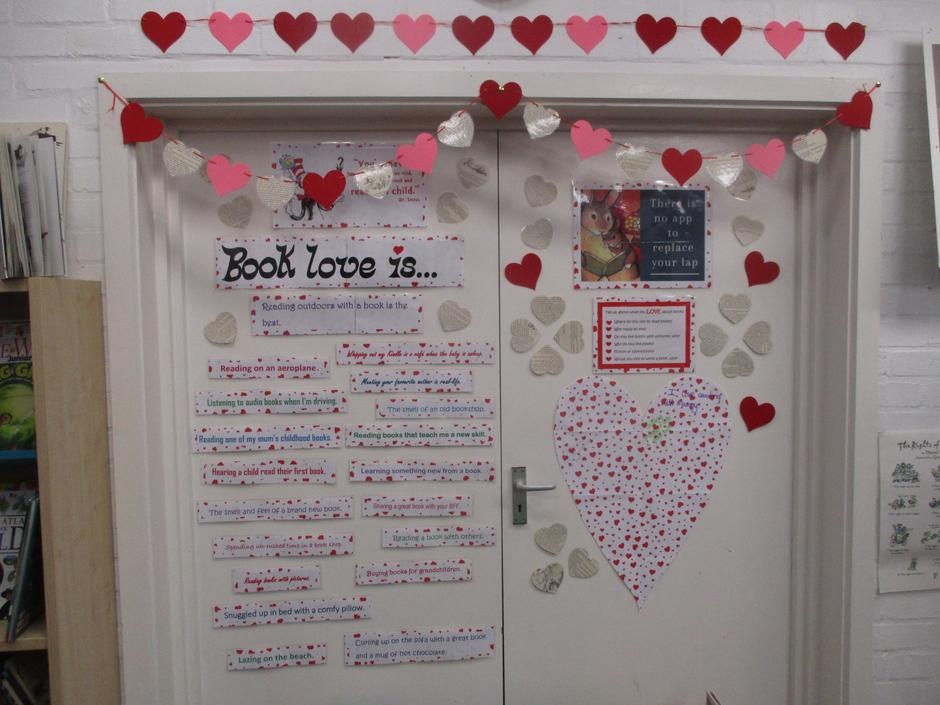 child."
Dr. Seuss
Book love is...
Reading outdoors with a book is the
best.
Reading on an aeroplane.
Whipping out my Kindle in a café when the baby is asleep.
Meeting your favourite author in real-life.
Listening to audio books when I'm driving.
The smell of an old bookshop.
Reading one of my mum's childhood books.
Reading books that teach me a new skill.
Hearing a child read their first book.
Learning something new from a book.
The smell and feel of a brand new book.
Sharing a great book with your BFF.
Spending un-rushed time in a book shop.
Reading a book with others.
Reading books with pictures.
Buying books for grandchildren.
Snuggled up in bed with a comfy pillow.
Lazing on the beach.
Curling up on the sofa with a great book
and a mug of hot chocolate.
There is
no app
to
replace
your lap
Tell us about what you LOVE about books!
Where do you like to read books?
Who reads to you?
The Rights of